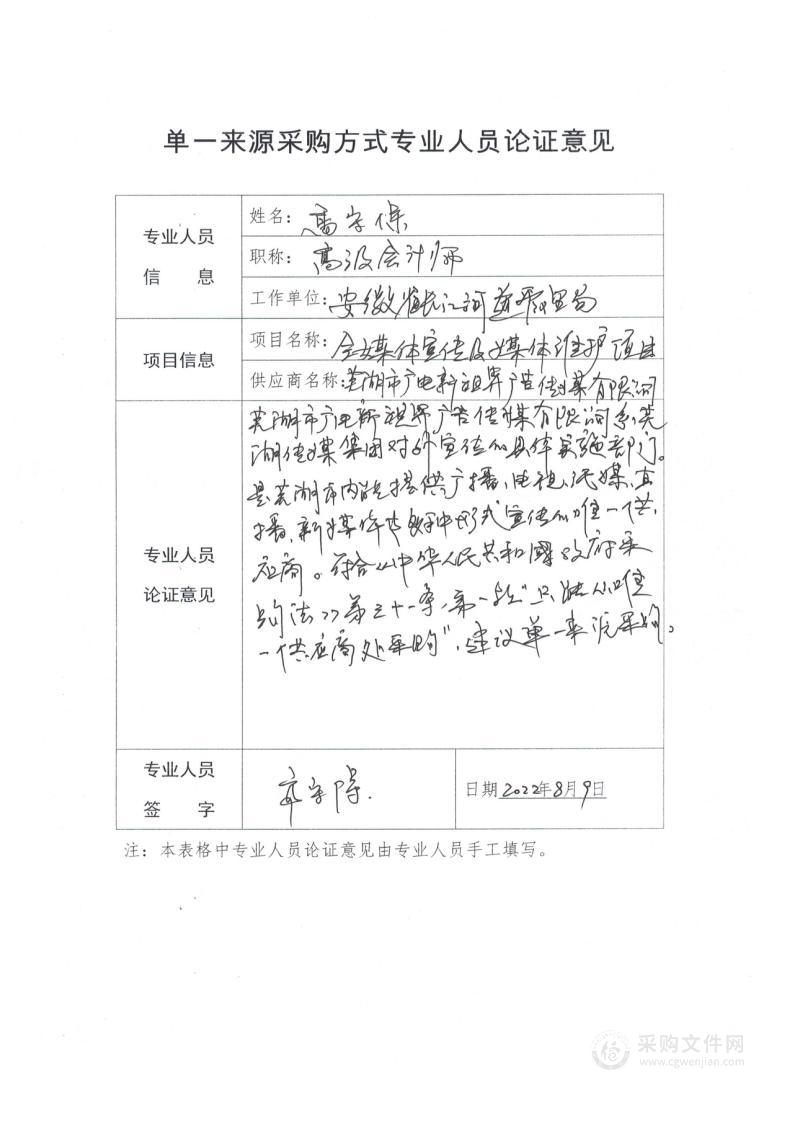 单一来源采购方式专业人员论证意见
专业人员
信 息
姓名：高宇保
职称：高级会计师
工作单位：安徽省长江河道管理局
项目信息
项目名称：全媒体宣传及媒体维护项目
供应商名称：芜湖市广电新视界广告传媒有限公司
专业人员
论证意见
芜湖市广电新视界广告传媒有限公司系芜
湖传媒集团对外宣传的具体实施部门。
是芜湖市内能提供广播、电视、纸媒、直
播、新媒体等多种形式宣传的唯一供
应商。符合《中华人民共和國政府采
购法》第三十一条，第一款"只能从唯
一供应商处采购"，建议单一来源采购。
专业人员
签 字
日期 2022年8月9日
注：本表格中专业人员论证意见由专业人员手工填写。
采购文件网
www.cgwenjian.com